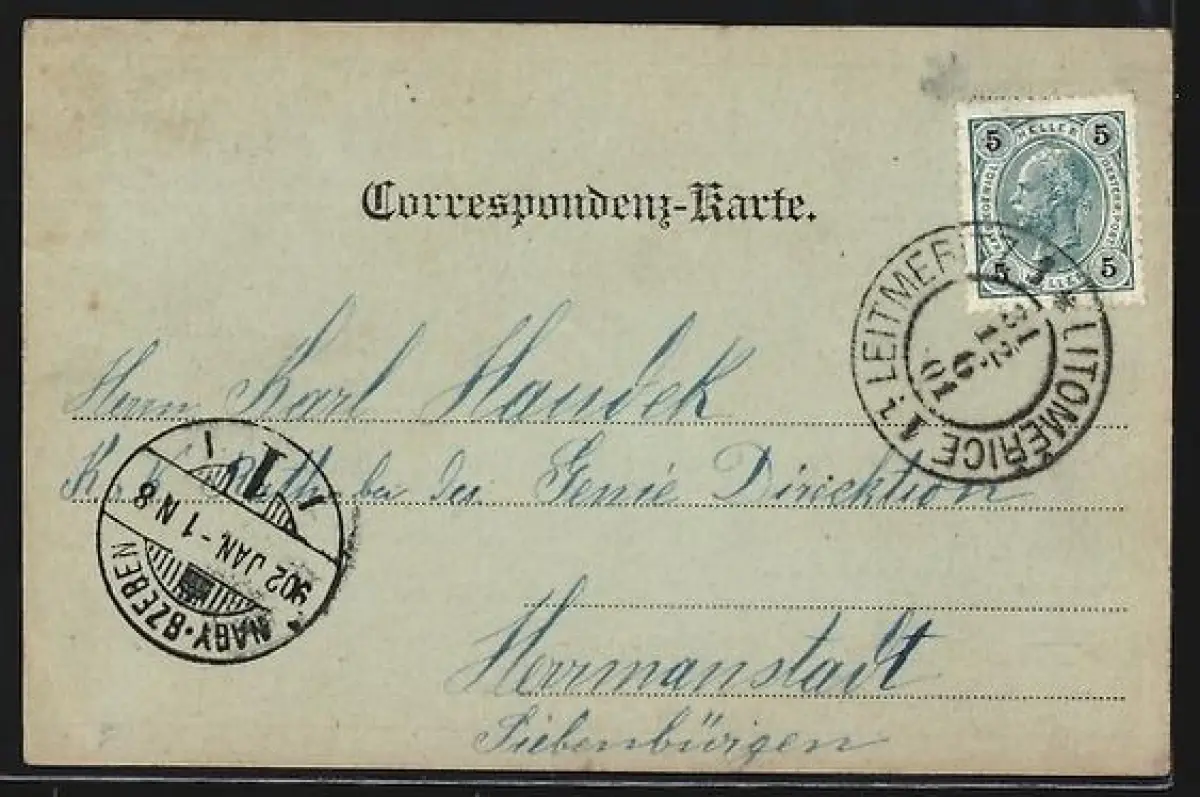 Correspondenz-Karte.
5 HELLER 5
5 HELLER 5
LEITMERITZ 1 * LITOMĚŘICE 1
31
12
6
01
Herrn Karl Haudek
K. k. der Genie Direcktion
1
902 JAN.-1 N 8
NAGY-SZEBEN
Herrmanstadt
Siebenbürgen